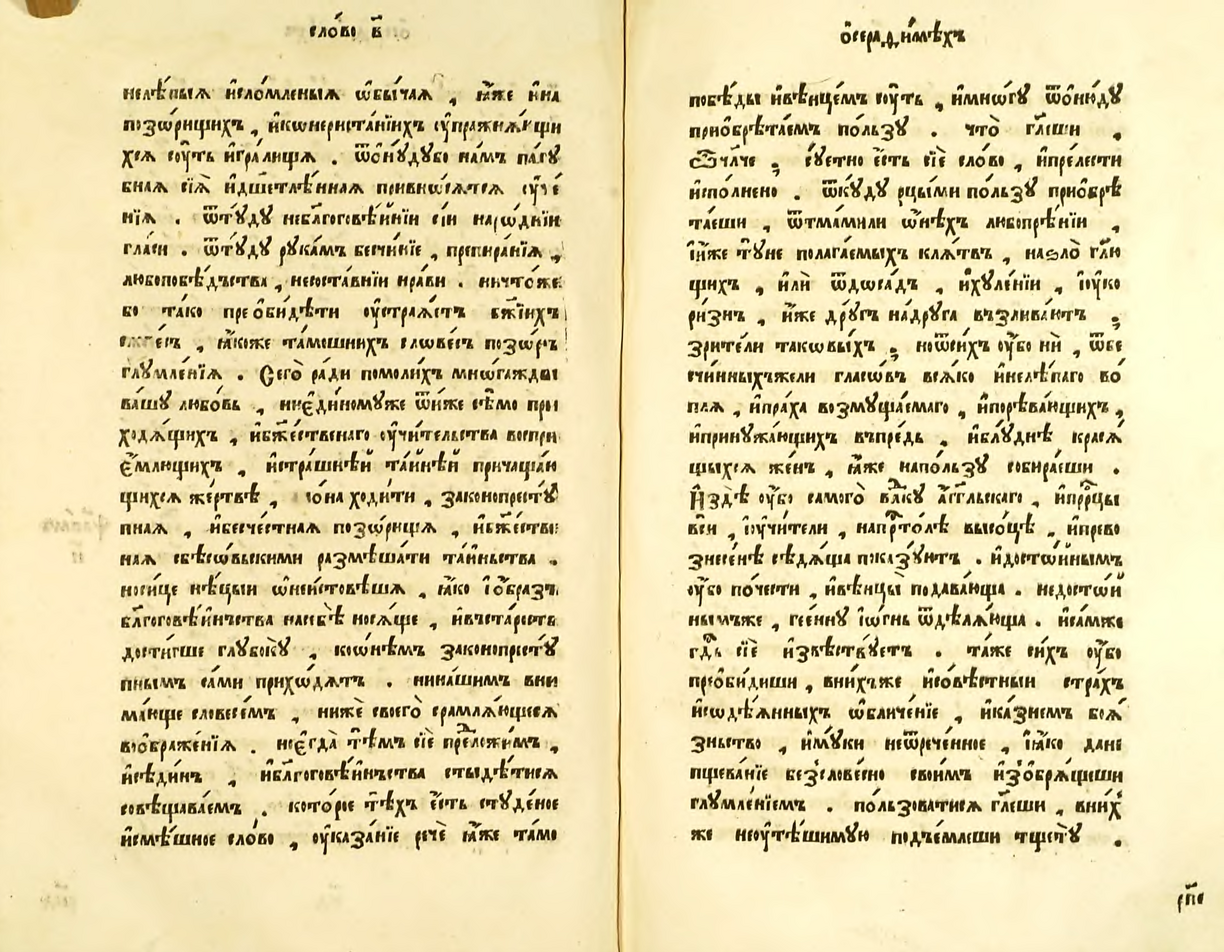 сло́во в҃
нелѣ́пыѧ и҆сло́мленыѧ ѡ҆бы́чаѧ , ꙗ҆́же и҆на
позѡ́рищихъ , и҆ко́нериста́нїихъ оу҆пражнѧ́ющи
хсѧ сꙋ́ть и҆гра́лищѧ . ѿѻ҆нꙋ́дꙋбо на́мъ па́гꙋ
бнаѧ сїѧ̀ и҆дш҃етлѣ́ннаѧ привно́сѧтсѧ оу҆че́
нїѧ . ѿтꙋ́дꙋ небл҃гоговѣ́йнїи сїи наро́днїи
гла́си . ѿтꙋ́дꙋ рꙋка́мъ бесчи́нїе , препира́нїѧ ,
любопобѣ́дъства , несоста́внїи нра́ви . ничто́же
бо та́ко преѻ҆би́дѣти оу҆строѧ́етъ бж҃їихъ
слове́съ , ꙗ҆́коже та́мошнихъ слове́съ позѡ́ръ
глꙋмле́нїѧ . Сего̀ ра́ди помоли́хъ мно́гажды
ва́шꙋ любо́вь , ниє҆ди́номꙋже ѿи҆же сѣ́мо при
ходѧ́щихъ , и҆бж҃е́ственаго оу҆чи́тельства воспри
є҆́млющихъ , и҆стра́шнѣй та́йнѣй прича́щаю
щихсѧ же́ртвѣ , ѻ҆на ходи́ти , законопрестꙋ́
пнаѧ , и҆бесче́стнаѧ позѡ́рищѧ , и҆бж҃е́стве
наѧ сбѣсѡ́вьскими размѣша́ти та́йньства .
носи́це нѣ́цыи ѡ҆неи́стовѣшѧ , ꙗ҆́ко ѻ҆́бразъ
бл҃гоговѣ́йньства насебѣ̀ носѧ́ще , и҆въста́рость
дости́гше глꙋбо́кꙋ , коѻ҆нѣ́мъ законопрестꙋ́
пнымъ са́ми прихо́дѧтъ . нина́шимъ вни
ма́юще словесе́мъ , нижѐ своего̀ срамлѧ́ющесѧ
воѻ҆браже́нїѧ . ноє҆гда̀ тѣ́мъ сїѐ предло́жимъ ,
и҆сѣди́нъ , и҆бл҃гоговѣ́йньства стыдѣ́тисѧ
совѣщава́емъ . кото́рое тѣ́хъ є҆́сть стꙋде́ное
и҆смѣ́шное сло́во , оу҆каза́нїе речѐ ꙗ҆́же та́мо
ѻ҆серафи́мѣхъ
побѣ́ды и҆вѣнце́мъ сꙋ́ть , и҆мно́гꙋ ѿѻ҆ню́дꙋ
приѻ҆брѣта́емъ по́льзꙋ . что̀ гл҃еши ,
ѽчл҃че ; сꙋ́етно є҆́сть сїѐ сло́во , и҆пре́лести
и҆спо́лнено . ѿкꙋ́дꙋ рцы́ми по́льзꙋ приѻ҆брѣ
та́еши , ѿтма́мили ѻ҆нѣ́хъ любопрѣ́нїи ,
и҆и҆́же тꙋ́не полага́емыхъ клѧ́твъ , наѕло̀ гл҃ю
щихъ , и҆лѝ ѿдоса́дъ , и҆хꙋле́нїи , и҆оу҆ко
ри́знъ , и҆́же дрꙋ́гъ на́дрꙋга възлива́ютъ ;
зри́тели тако́выхъ ; ноѿси́хъ оу҆́бо нѝ , ѿбе
счи́нныхъжели гласо́въ всѧ́ко и҆нелѣ́паго во́
плѧ , и҆пра́ха возмꙋща́емаго , и҆порѣва́ющихъ ,
и҆принꙋжа́ющихъ въпре́дь , и҆блꙋ́днѣ красѧ́
щыхсѧ же́нъ , ꙗ҆́же напо́льзꙋ собира́еши .
И҆здѣ̀ оу҆́бо самого̀ влⷣкꙋ а҆́гг҃льскаго , и҆прⷪ҇рцы
всѝ , и҆оу҆чи́тели , напрⷭ҇то́лѣ высо́цѣ , и҆прево
знесе́нѣ сѣдѧ́ща пока́зꙋютъ . и҆досто́йнымъ
оу҆́бо по́чести , и҆вѣнцы̀ подава́юща . недосто́й
нымъже , гее́ннꙋ и҆ѻ҆́гнь ѿдѣлѧ́юща . и҆са́мже
гдⷭ҇ь сїѐ и҆звѣ́ствꙋетъ . та́же си́хъ оу҆́бо
преѻ҆би́диши , вни́хъже и҆со́вѣстныи стра́хъ
и҆содѣ́ѧнныхъ ѡ҆бличе́нїе , и҆ка́знемъ боѧ́
зньство , и҆мꙋ́ки неѿрече́нное , и҆ꙗ҆́ко дане
пщева́нїе безслове́сно свои́мъ и҆зѡбрѧ́щеши
глꙋмле́нїемъ . по́льзоватисѧ гл҃еши , вни́х
же неоу҆тѣ́шимꙋю подъе́млеши тщетꙋ̀ .
рп҃е